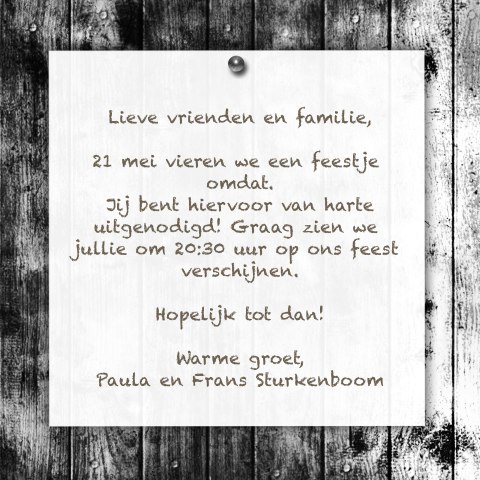 Lieve vrienden en familie,
21 mei vieren we een feestje
omdat.
Jij bent hiervoor van harte
uitgenodigd! Graag zien we
jullie om 20:30 uur op ons feest
verschijnen.
Hopelijk tot dan!
Warme groet,
Paula en Frans Sturkenboom